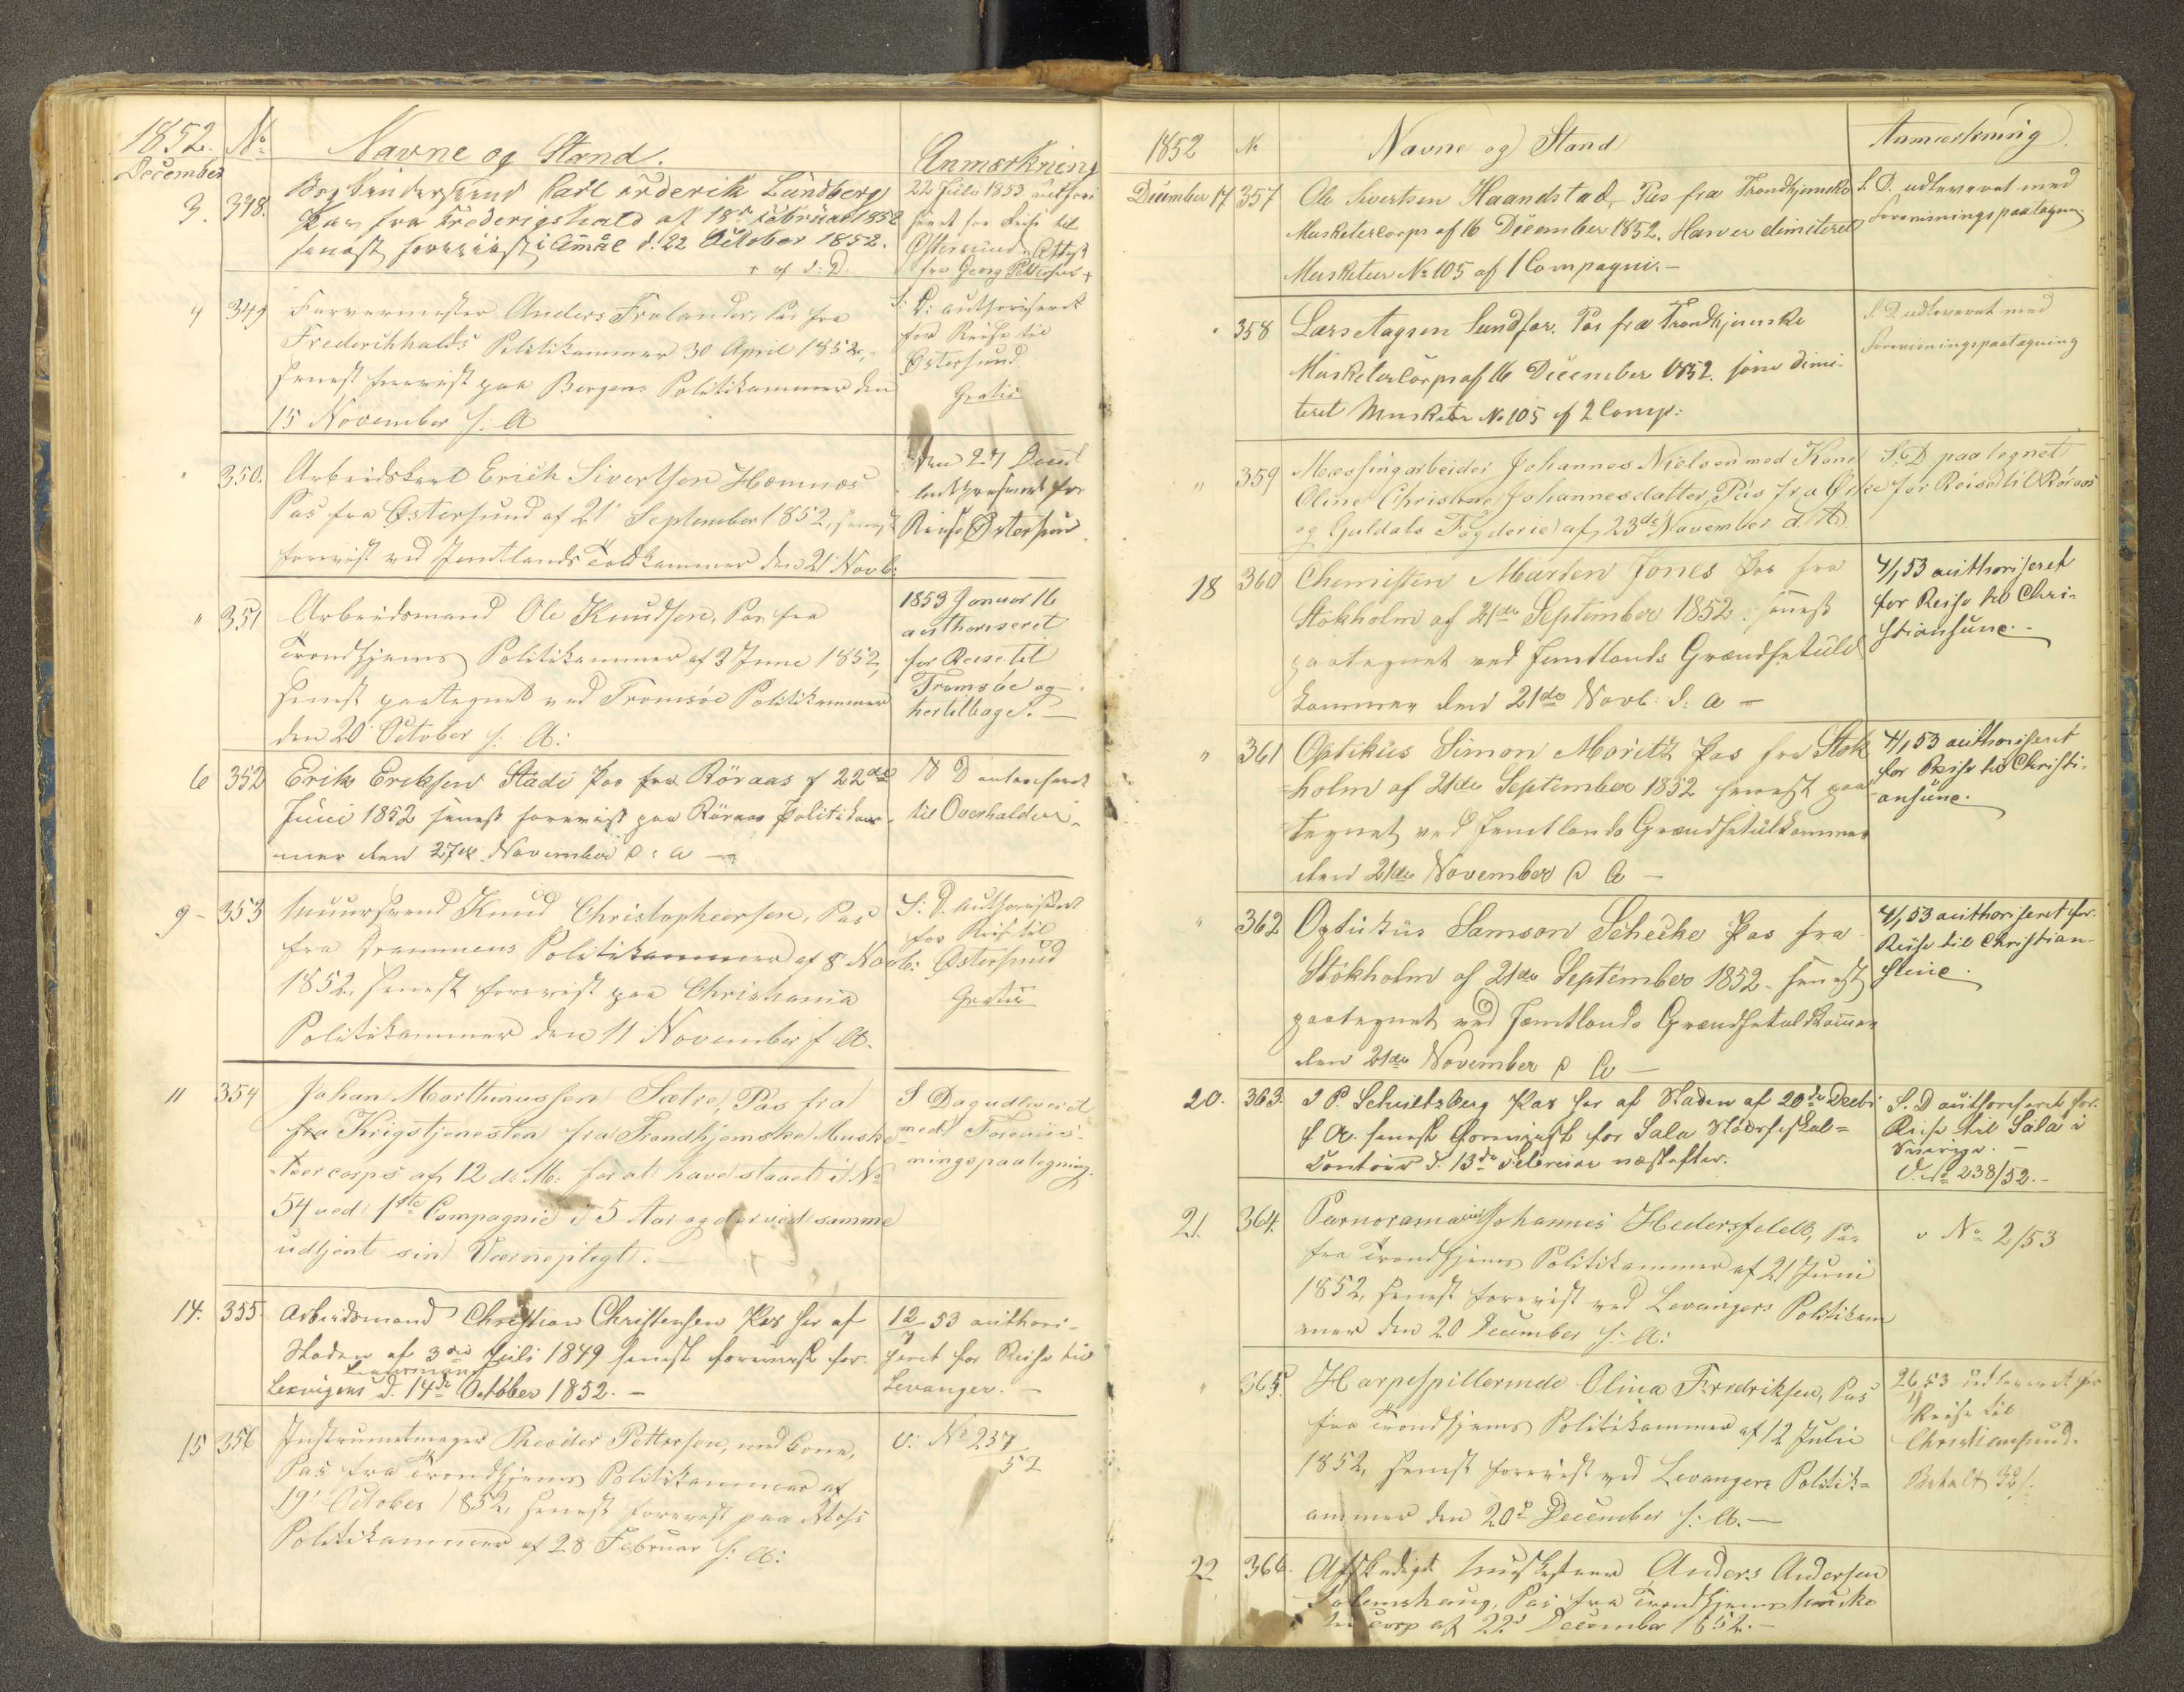 1852. No Navne og Stand. Anmærkning
December
3. 348. Carl Frederik Lundberg
Pas fra Frederigshald af 18de Februar 1852
senest forevist i Åmål d. 22 October 1852.
+ af s: D.
22 Julii 1853 authori
seret for Reise til
Østersund Attest
fra Georg Pettersen +
4 349 Farvermester Anders Frolander, Pas fra
Frederichhalds Politikammer 30 April 1852,
senest forevist paa Bergens Politikammer den
15 November s: A
S: D: authoriseret
for Reise til
Østersund
Gratis
" 350. Arbeidskarl Erich Sivertsen Homnæs
Pas fra Østersund af 21 September 1852, senest
forevist ved Jemtlands Toldkammer den 21 Novb:
Den 27 Decbr
authoriseret for
Reise Østersund
" 351 Arbeidsmand Ole Knudsen, Pas fra
Trondhjems Politikammer af 3 June 1852,
senest paategnet ved Tromsöe Politikammer
den 20 October s: A:
1853 Januar 16
authoriseret
for Reise til
Tromsöe og
hertilbage. —
6 352 Erik Eriksen Stadi Pas fra Röraas af 22de
Juni 1852 senest forevist paa Röraas Politikam-
mer den 27de November s: a —
S D autoriseret
til Overhalden.
9 - 353 Muursvend Knud Christophersen, Pas
fra Drammens Politikammer af 8 Novb:
1852, senest forevist paa Christiania
Politikammer den 11 November s A.
S: D. authoriseret
for Reise til
Østersund
Gratis
11 354 Johan Morthinussen Sætre, Pas fra
fra Krigstjenesten fra Trondhjemske Muske
teercorps af 12 d: M: for at have staaet i No
54 ved 1ste Compagnie i 5 Aar og derved samme
udtjent sin Værnepligt. —
S Dag udleveret
med Forevis-
ningspaategning.
14. 355. Arbeidsmand Christian Christensen Pas her af
Staden af 3die Juli 1849 senest forevist for
Lensmand
Lexvigens d. 14de October 1852. —
12/7 53 authori-
seret for Reise til
Levanger. —
15 356 Instrumetmager Theodor Pettersen, med Kone,
Pas fra Trondhjems Politikammer af
19 October 1852, senest forevist paa Moss
Politikammer af 28 Februar s: A:
V: No 237/52
1852 No Navne og Stand Anmærkning.
December 17 357 Ole Sivertsen Haandstad, Pas fra Trondhjemske
Musketercorps af 16 December 1852. Han er dimiteret
Musketeer No 105 af 1 Compagni. —
S. D. udleveret med
Forevisningspaategn
" 358 Lars Aagsen Sundfar. Pas fra Trondhjemske
Musketer Corps af 16 December 1852. som dimi-
teret Musketer No 105 af 2 Comp:
S. D. udleveret med
Forevisningspaategning
" 359 Mæssingarbeider Johannes Nielsen med Kone
Oline Christine Johannesdatter, Pas fra
og Guldals Fogderie af 23de November d. A.
S. D paategnet
for Reise til Röraas
18 360 Chemisten Marten Jones Pas fra
Stokholm af 21de September 1852. senest
paategnet ved Jemtlands Grændsetuld
kammer den 21de Novb. s: a —
4/1 53 authoriseret
for Reise til Chri-
stiansund. -
" 361 Optikus Simon Moritz Pas fra Stok
holm af 21de September 1852 senest paa
tegnet ved Jemtlands Grændsetulkammer
den 21de November s a —
4/1 53 authoriseret
for Reise til Christi-
ansund.
" 362 Optikus Samson Schecke Pas fra
Stokholm af 21de September 1852 - senest
paategnet ved Jæmtlands Grændsetuldkammer
den 21de November s a —
4/1 53 authoriseret for
Reise til Christian-
sund.
20. 363. J P. Schultzberg Pas her af Staden af 20de Decbr
f A. senest forevist for Sala
Contoir d. 13de Februar næstefter.
S. D authoriseret for
Reise til Sala i
Sverige. —
V. No 238/52. -
21. 364. Johannes Hedersfeldt, Pas
fra Trondhjems Politikammer af 21 Juni
1852, senest forevist ved Levangers Politikam
mer den 20 December s: A:
v No 2/53
" 365. Harpespillerinde Olina Fredriksen, Pas
fra Trondhjems Politikammer af 12 Julii
1852, senest forevist ved Levangers Politik-
ammer den 20de December s: A. —
26/1 53 udleveret for
Reise til
Christiansund.
Betalt 32 s.
22 366. Afskediget Musketeer Anders Andersen
Solemshaug, Pas fra Trondhjemske Muske
teercorp af 22de December 1852. —